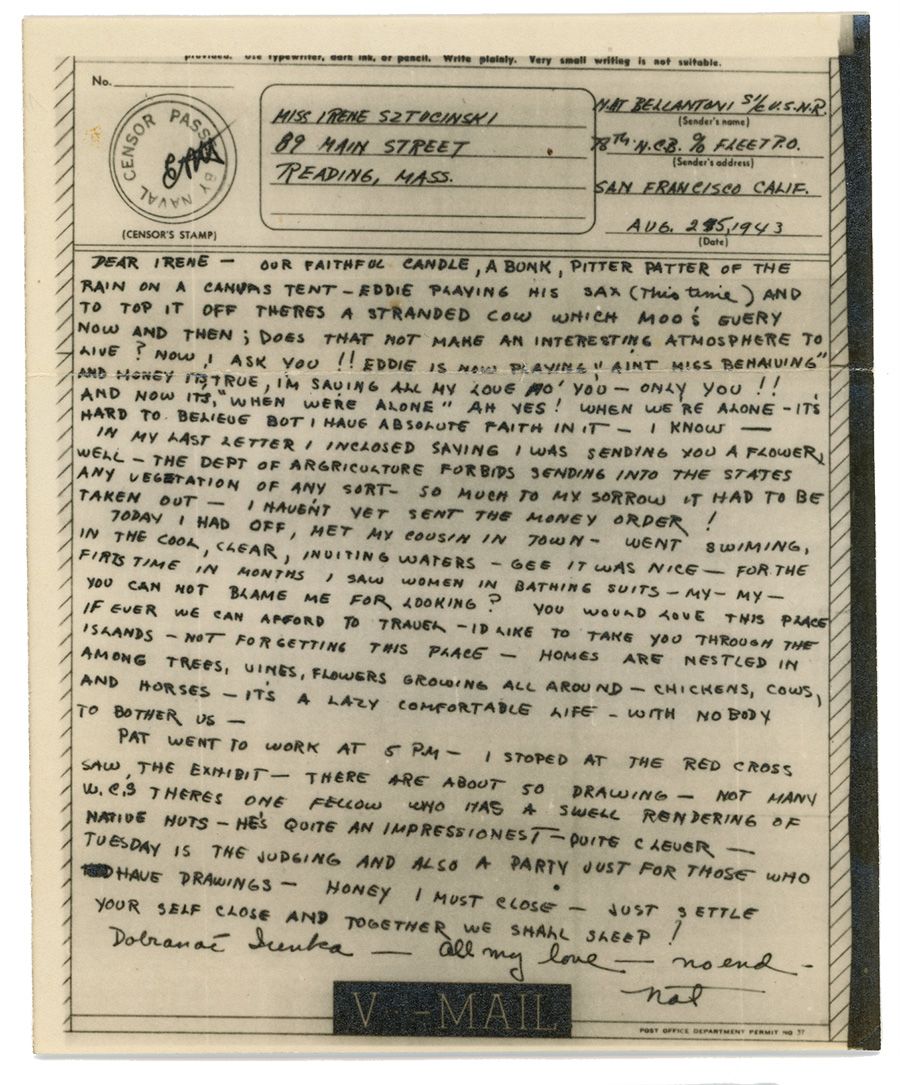 provided. Use typewriter, dark ink, or pencil. Write plainly. Very small writing is not suitable.
No.
CENSOR PASSED BY NAVAL
(CENSOR'S STAMP)
MISS IRENE SZTUCINSKI
89 MAIN STREET
READING, MASS.
NAT BELLANTONI S1/c U.S.N.R.
(Sender's name)
78TH N.C.B. c/o FLEET P.O.
(Sender's address)
SAN FRANCISCO CALIF.
AUG. 25, 1943
(Date)
DEAR IRENE — OUR FAITHFUL CANDLE, A BUNK, PITTER PATTER OF THE
RAIN ON A CANVAS TENT — EDDIE PLAYING HIS SAX (This time) AND
TO TOP IT OFF THERES A STRANDED COW WHICH MOO'S EVERY
NOW AND THEN; DOES THAT NOT MAKE AN INTERESTING ATMOSPHERE TO
LIVE? NOW, I ASK YOU!! EDDIE IS NOW PLAYING "AINT MISS BEHAIVING"
AND HONEY IT'S TRUE, I'M SAVING ALL MY LOVE FO' YOU — ONLY YOU!!
AND NOW ITS, "WHEN WE'RE ALONE" AH YES! WHEN WE'RE ALONE - IT'S
HARD TO BELIEVE BUT I HAVE ABSOLUTE FAITH IN IT — I KNOW —
IN MY LAST LETTER I INCLOSED SAYING I WAS SENDING YOU A FLOWER,
WELL — THE DEPT OF ARGRICULTURE FORBIDS SENDING INTO THE STATES
ANY VEGETATION OF ANY SORT - SO MUCH TO MY SORROW IT HAD TO BE
TAKEN OUT — I HAVEN'T YET SENT THE MONEY ORDER!
TODAY I HAD OFF, MET MY COUSIN IN TOWN - WENT SWIMING,
IN THE COOL, CLEAR, INVITING WATERS - GEE IT WAS NICE — FOR THE
FIRTS TIME IN MONTHS I SAW WOMEN IN BATHING SUITS — MY - MY —
YOU CAN NOT BLAME ME FOR LOOKING? YOU WOULD LOVE THIS PLACE
IF EVER WE CAN AFFORD TO TRAVEL - I'D LIKE TO TAKE YOU THROUGH THE
ISLANDS - NOT FORGETTING THIS PLACE — HOMES ARE NESTLED IN
AMONG TREES, VINES, FLOWERS GROWING ALL AROUND — CHICKENS, COWS,
AND HORSES - IT'S A LAZY COMFORTABLE LIFE - WITH NOBODY
TO BOTHER US —
PAT WENT TO WORK AT 5 PM — I STOPED AT THE RED CROSS
SAW, THE EXHIBIT — THERE ARE ABOUT 50 DRAWING — NOT MANY
W.C.S THERES ONE FELLOW WHO HAS A SWELL RENDERING OF
NATIVE HUTS - HE'S QUITE AN IMPRESSIONEST — QUITE CLEVER —
TUESDAY IS THE JUDGING AND ALSO A PARTY JUST FOR THOSE WHO
HAVE DRAWINGS — HONEY I MUST CLOSE — JUST SETTLE
YOUR SELF CLOSE AND TOGETHER WE SHALL SLEEP!
Dobranać Irenka — All my love — no end —
Nat
V···—MAIL
POST OFFICE DEPARTMENT PERMIT NO 37